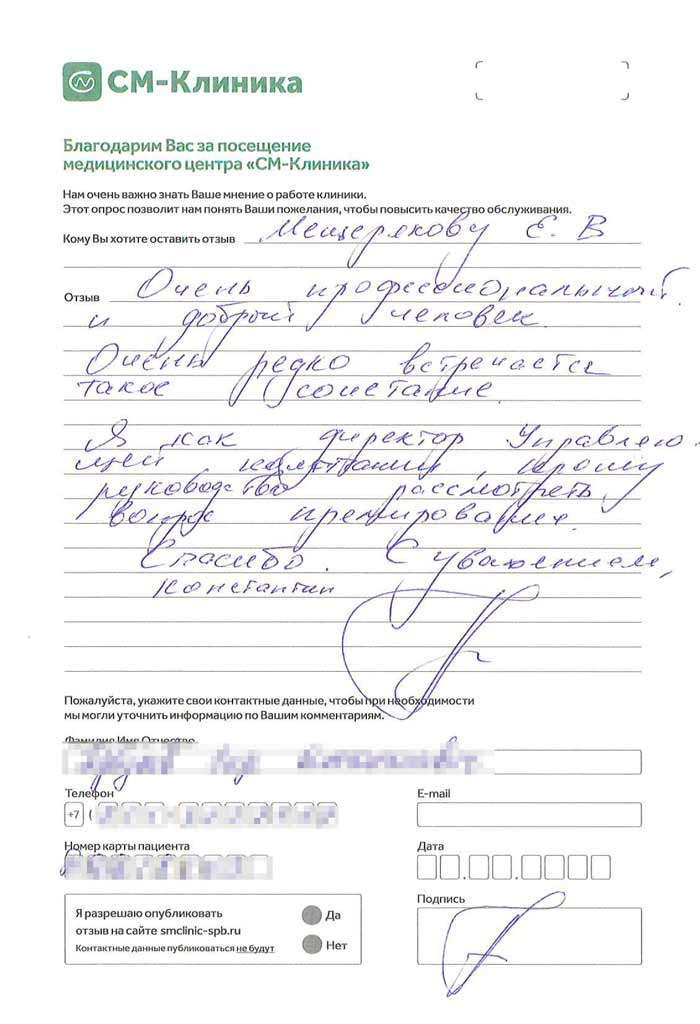 СМ-Клиника
Благодарим Вас за посещение
медицинского центра «СМ-Клиника»
Нам очень важно знать Ваше мнение о работе клиники.
Этот опрос позволит нам понять Ваши пожелания, чтобы повысить качество обслуживания.
Кому Вы хотите оставить отзыв Мещерякову Е. В
Отзыв Очень профессиональный
и добрый человек.
Очень редко встречается
такое сочетание.
Я как директор Управляю-
щей компании, прошу
руководство рассмотреть
вопрос премирования.
Спасибо. С уважением,
Константин
Пожалуйста, укажите свои контактные данные, чтобы при необходимости
мы могли уточнить информацию по Вашим комментариям.
Фамилия Имя Отчество
Телефон E-mail
+7 (
Номер карты пациента Дата
Подпись
Я разрешаю опубликовать
отзыв на сайте smclinic-spb.ru
Контактные данные публиковаться не будут
Да
Нет